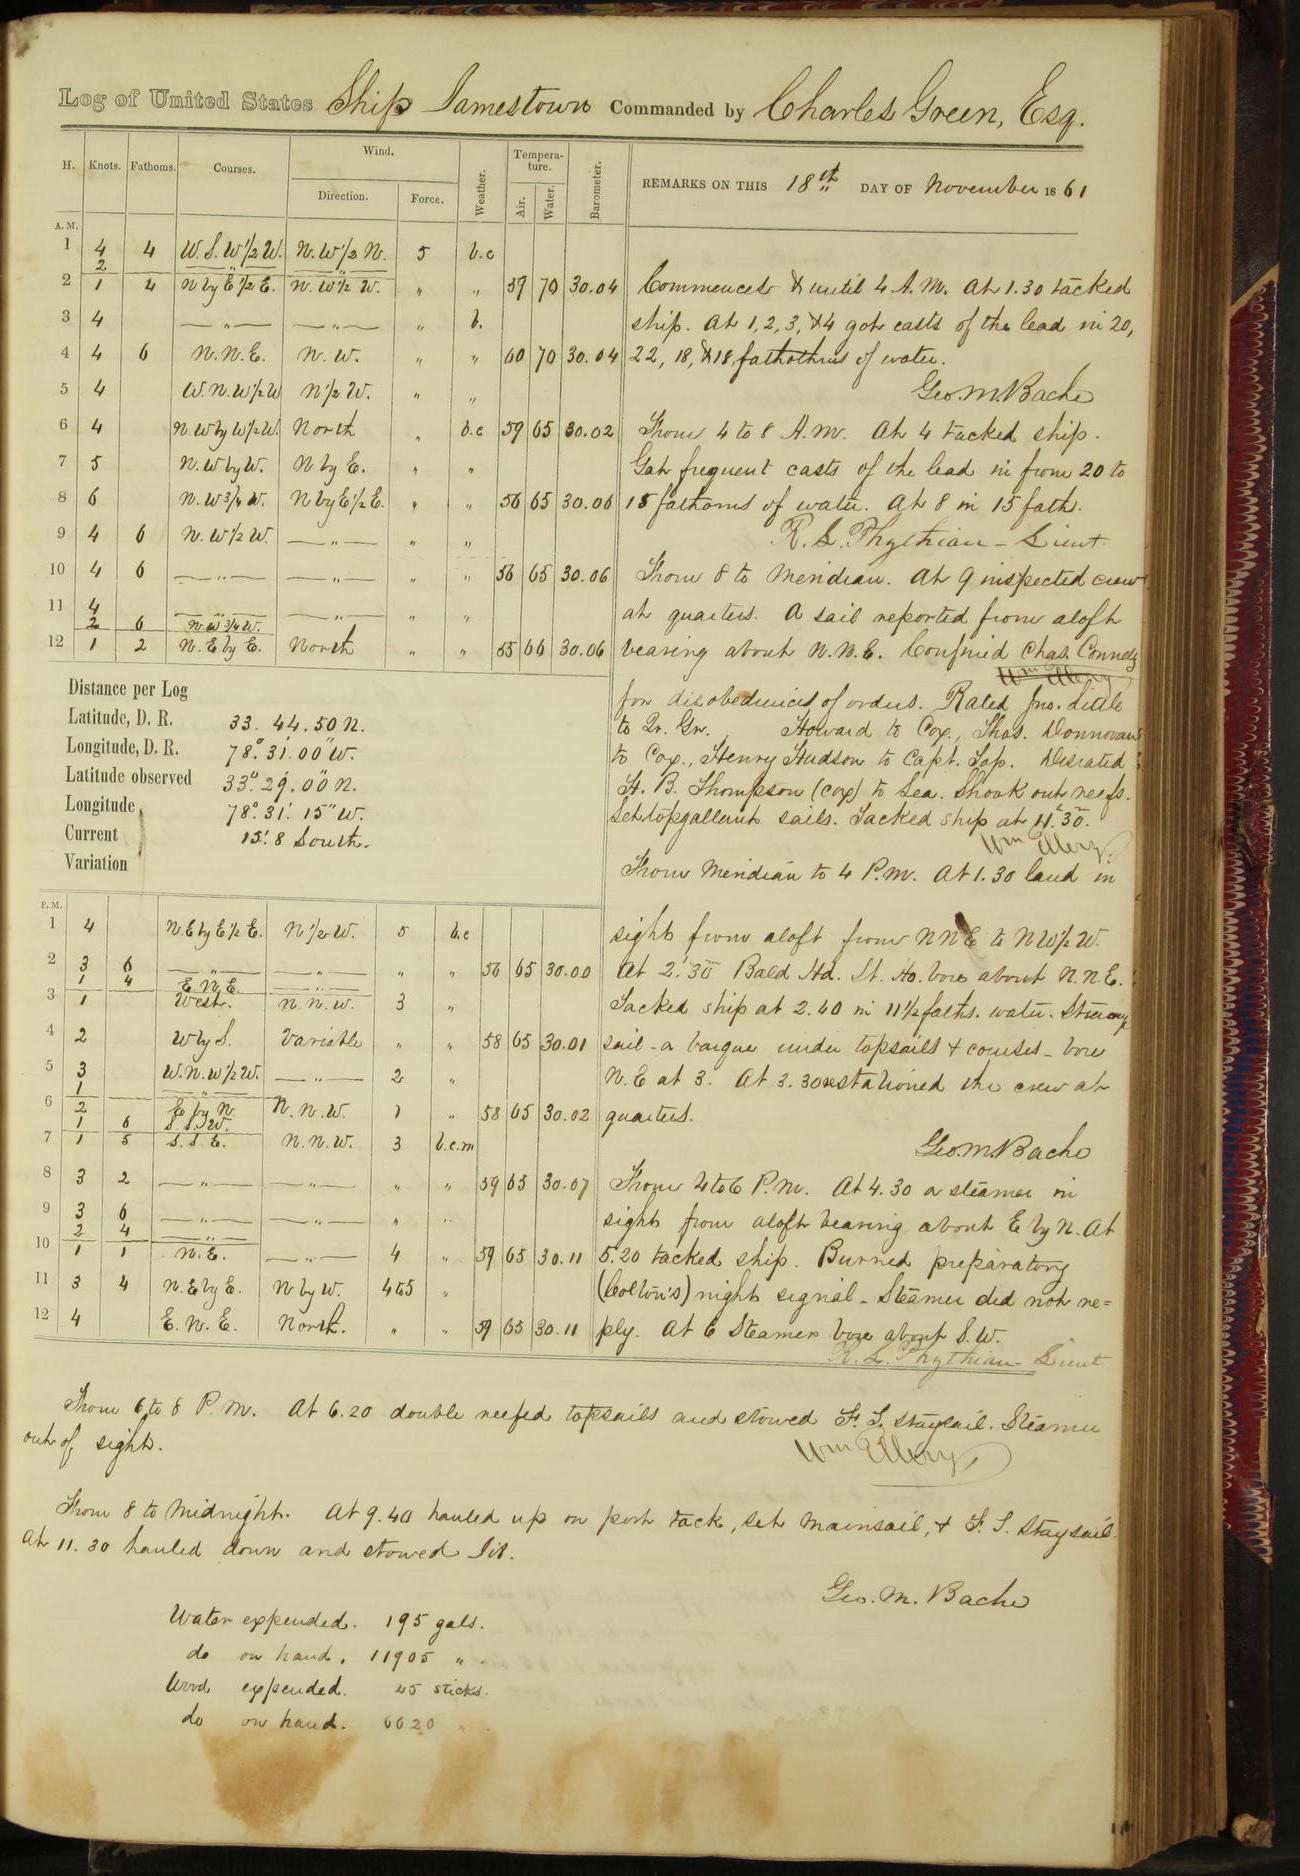 Log of United States Ship Jamestown Commanded by Charles Green, Esq.
H. Knots. Fathoms. Courses. Wind. Direction. Force. Weather. Tempera-ture. Air. Water. Barometer. REMARKS ON THIS 18th DAY OF November 1861
A. M.
1 4 4 W.S.W1/2W. N.W1/2N. 5 b.c
2
2 1 4 N by E1/2E. N.W1/2W. " " 59 70 30.04 Commences & until 4 A.M. At 1.30 tacked
3 4 —"— —"— " b. ship. At 1, 2, 3, & 4 got casts of the lead in 20,
4 4 6 N.N.E. N.W. " " 60 70 30.04 22, 18, & 18 fathoms of water.
5 4 W.N.W1/2W N1/2W. " " Geo. M. Bache
6 4 N.W by W1/2W. North " b.c 59 65 30.02 From 4 to 8 A.M. At 4 tacked ship.
7 5 N.W by W. N by E. " " Got frequent casts of the lead in from 20 to
8 6 N.W3/4W. N by E1/2E. " " 56 65 30.06 15 fathoms of water. At 8 in 15 fath.
9 4 6 N.W1/2W. —"— " " R. L. Phythian - Lieut
10 4 6 —"— —"— " " 56 65 30.06 From 8 to Meridian. At 9 inspected crew
11 4 —"— —"— " " at quarters. A sail reported from aloft
2 6 N.W3/4W.
12 1 2 N.E by E. North " " 55 66 30.06 bearing about N.N.E. Confined Chas. Connely
Wm Ellery
for disobedience of orders. Rated Jno. Little
to Qr. Gr. Howard to Cox., Thos. Donnovan
to Cox., Henry Hudson to Capt. Top. Disrated
H. B. Thompson (cox) to Sea. Shook out reefs.
Set topgallant sails. Tacked ship at 11.30.
Wm Ellery.
Distance per Log
Latitude, D. R. 33. 44. 50 N.
Longitude, D. R. 78° 31' 00" W.
Latitude observed 33° 29' 00" N.
Longitude 78° 31' 15" W.
Current 15' 8 South.
Variation
From Meridian to 4 P.M. At 1.30 land in
P. M.
1 4 N.E by E1/2E. N1/2W. 5 b.c sight from aloft from NNE to NW1/2W.
2 3 6 —"— —"— " " 56 65 30.00 At 2.30 Bald Hd. Lt. Ho. bore about N.N.E.
1 4 E.N.E. —"—
3 1 West. N.N.W. 3 " Tacked ship at 2.40 in 11 1/2 faths. water. Strange
4 2 W by S. Variable " " 58 65 30.01 sail - a barque under topsails & courses - bore
5 3 W.N.W1/2W. —"— 2 " N.E at 3. At 3.30 stationed the crew at
1 —"—
6 2 E by N. N.N.W. 1 " 58 65 30.02 quarters.
1 6 S.S.W.
7 1 5 S.S.E. N.N.W. 3 b.c.m Geo. M. Bache
8 3 2 —"— —"— " " 59 65 30.07 From 4 to 6 P.M. At 4.30 a steamer in
9 3 6 —"— —"— " " sight from aloft bearing about E by N. At
2 4 —"—
10 1 1 N.E. —"— 4 " 59 65 30.11 5.20 tacked ship. Burned preparatory
11 3 4 N.E by E. N by W. 4 to 5 " (Colton's) night signal - Steamer did not re=
12 4 E.N.E. North. " " 59 65 30.11 ply. At 6 Steamer bore about S.W.
R. L. Phythian - Lieut
From 6 to 8 P.M. At 6.20 double reefed topsails and stowed F. T. staysail. Steamer
out of sight.
Wm Ellery
From 8 to Midnight. At 9.40 hauled up on port tack, set mainsail, & F. T. Staysail
At 11.30 hauled down and stowed Jib.
Geo. M. Bache
Water expended. 195 gals.
do on hand. 11905 " .
Wood expended. 45 sticks.
do on hand. 6620 " .